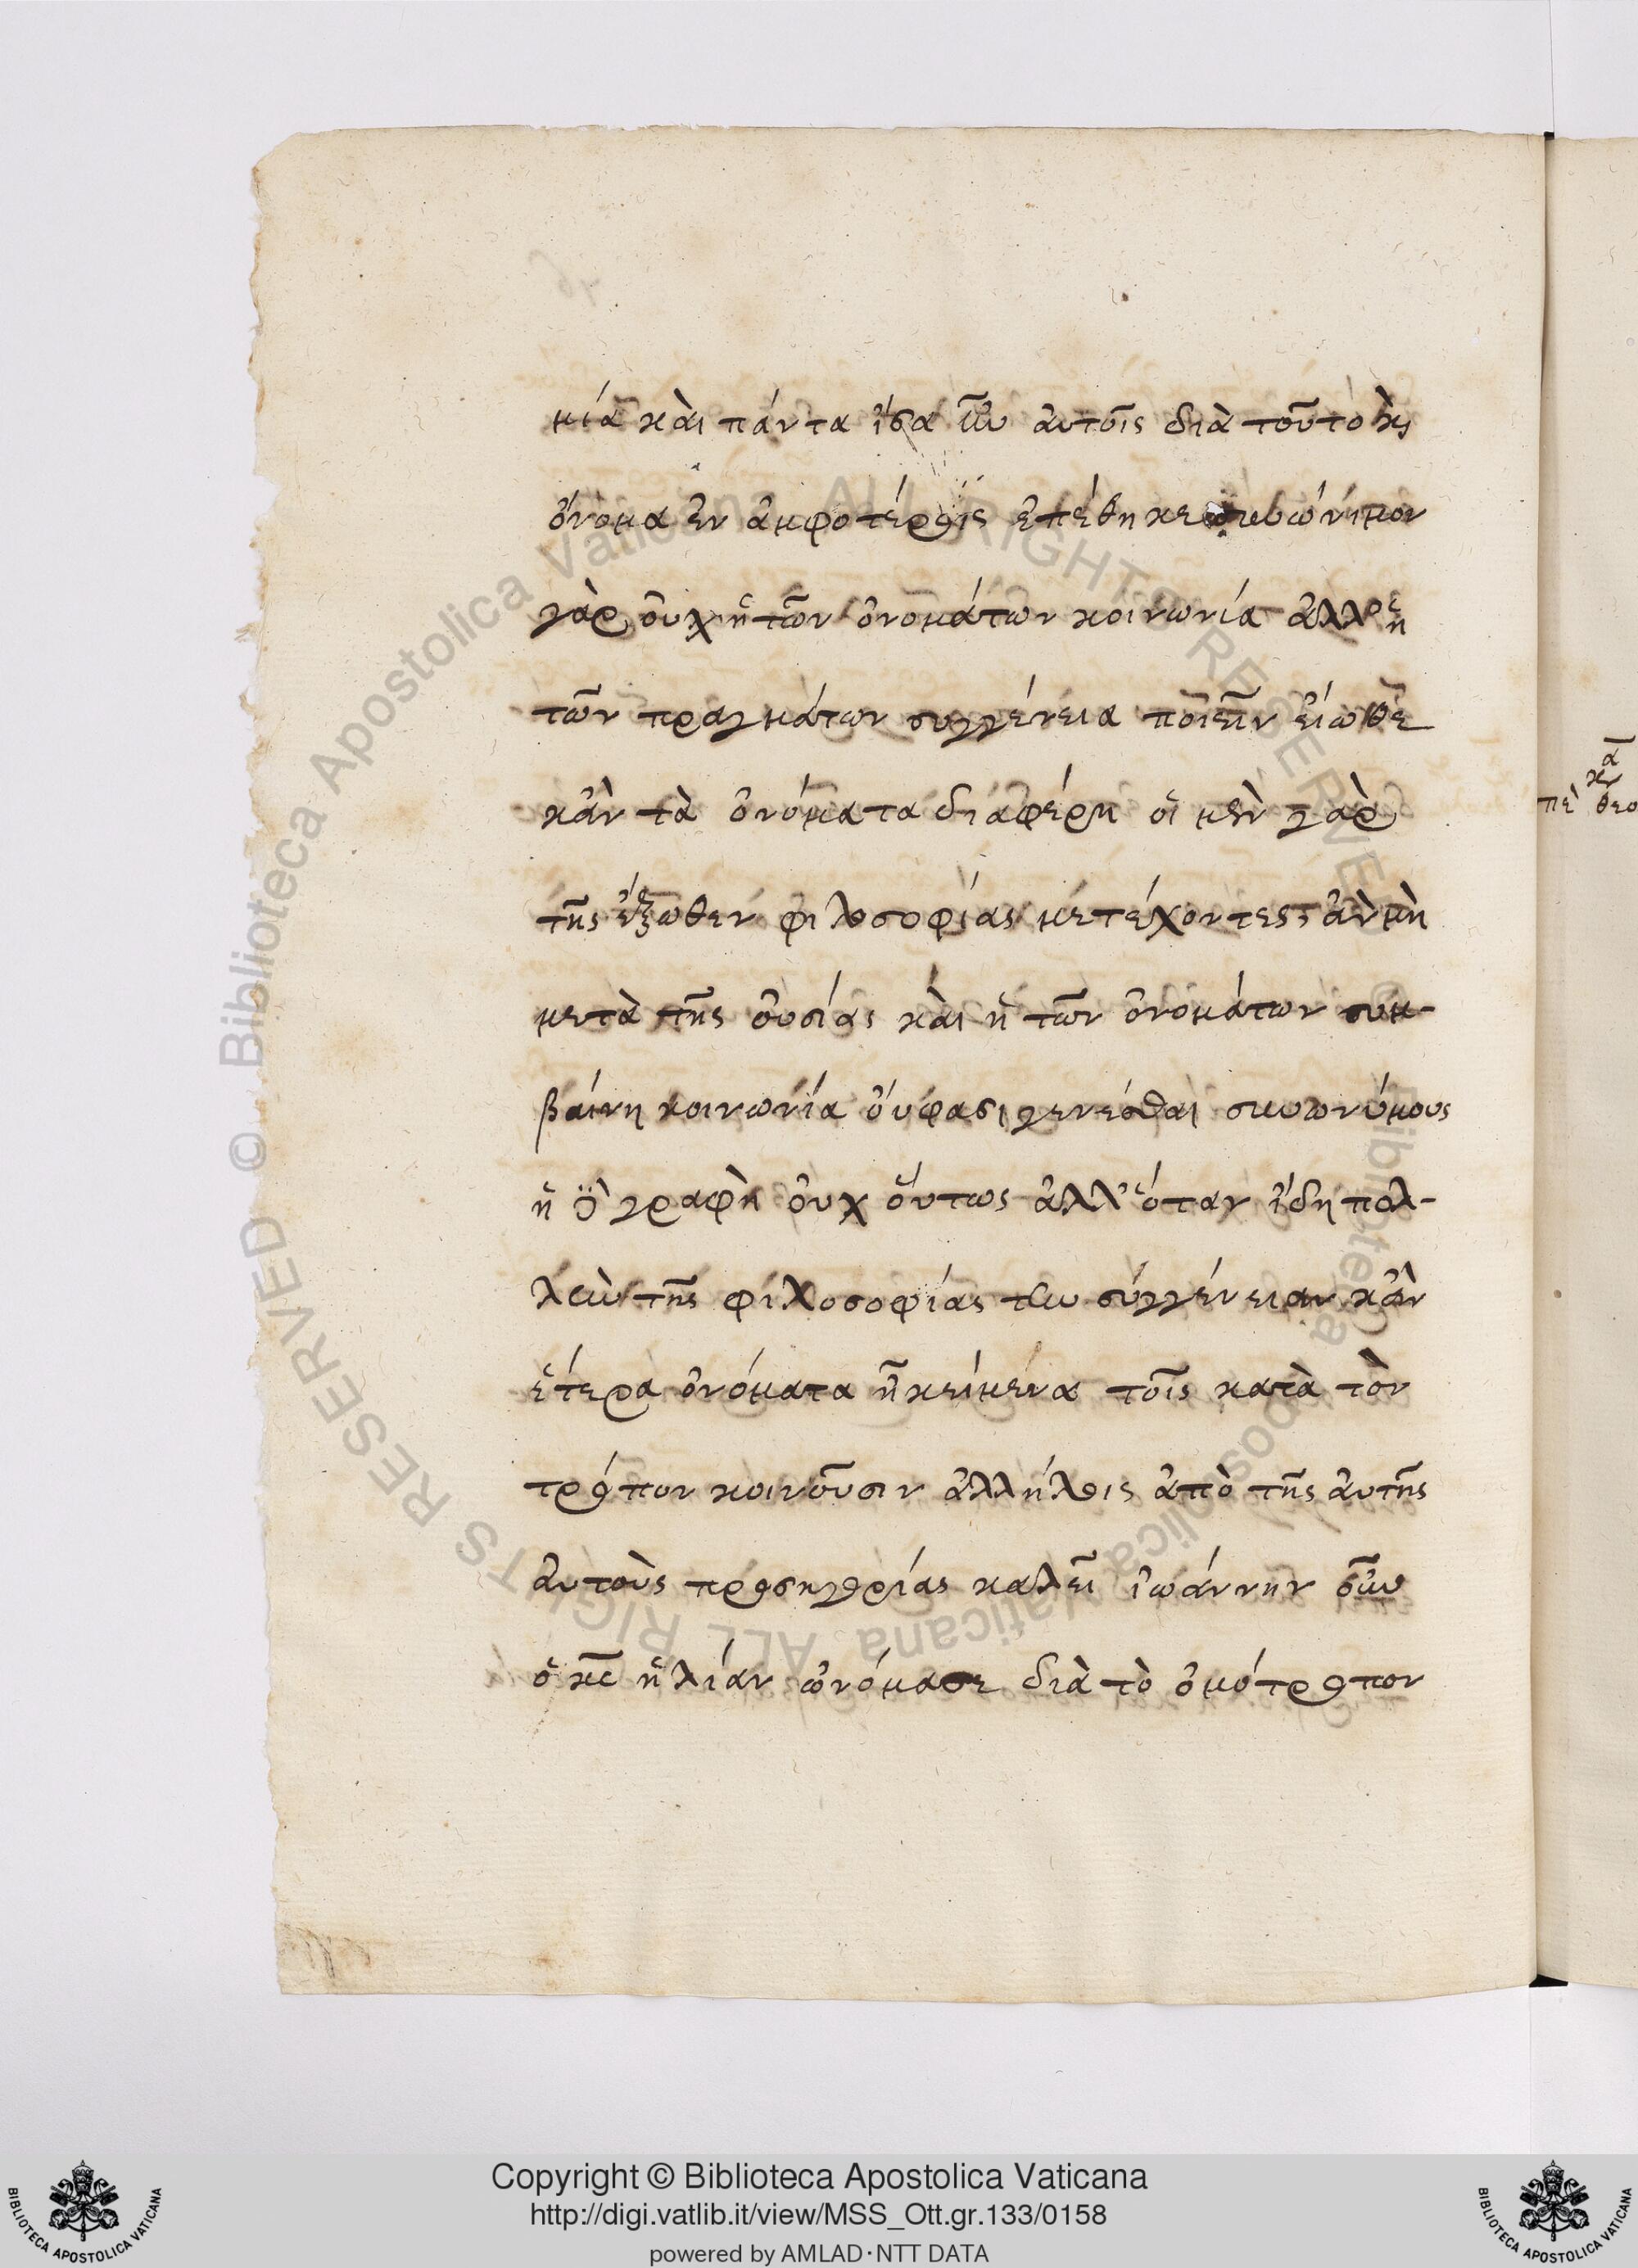 μία καὶ πάντα ἴσα ἦν αὐτοῖς διὰ τοῦτο κς
ὄνομα ἓν ἀμφοτέροις ἐπέθηκε συνώνιμον
γὰρ οὐχ ἡ τῶν ὀνομάτων κοινωνία ἀλλ' ἡ
τῶν πραγμάτων συγγένεια ποιεῖν εἴωθε
κἂν τὰ ὀνόματα διαφέρη οἱ μὲν γὰρ
τῆς ἔξωθεν φιλοσοφίας μετέχοντες ἂν μὴ
μετὰ τῆς οὐσίας καὶ ἡ τῶν ὀνομάτων συμ-
βαίνη κοινωνία οὔ φασι γενέσθαι συνωνύμους
ἡ δὲ γραφὴ οὐχ οὕτως ἀλλ' ὅταν ἴδη πολ-
λὴν τῆς φιλοσοφίας τὴν συγγένειαν κἂν
ἕτερα ὀνόματα ἦ κείμενα τοῖς κατὰ τὸν
τρόπον κοινοῦσιν ἀλλήλοις ἀπὸ τῆς αὐτῆς
αὐτοὺς προσηγορίας καλεῖ ἰωάννην οὖν
ὁ κς ἡλίαν ὠνόμασε διὰ τὸ ὁμότροπον
πε θεο
© Biblioteca Apostolica Vaticana ALL RIGHTS RESERVED © Biblioteca Apostolica Vaticana ALL RIGHTS RESERVED
Copyright © Biblioteca Apostolica Vaticana
http://digi.vatlib.it/view/MSS_Ott.gr.133/0158
powered by AMLAD·NTT DATA
BIBLIOTECA APOSTOLICA VATICANA
BIBLIOTECA APOSTOLICA VATICANA